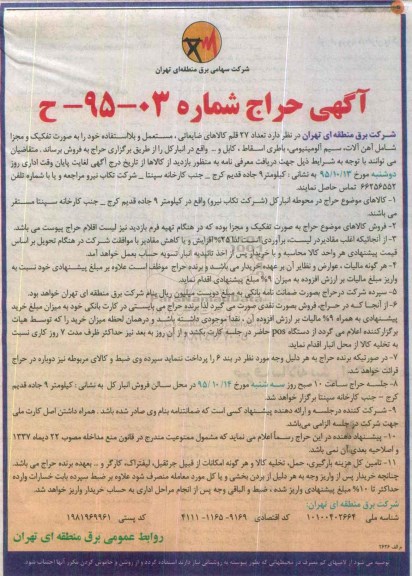 شرکت سهامی برق منطقه‌ای تهران
آگهی حراج شماره ۰۳-۹۵- ح
شرکت برق منطقه ای تهران در نظر دارد تعداد ۲۷ قلم کالاهای ضایعاتی ، مستعمل و بلااستفاده خود را به صورت تفکیک و مجزا
شامل آهن آلات، سیم آلومینیومی، باطری اسقاط ، کابل و .. واقع در انبار کل را از طریق برگزاری حراج به فروش برساند . متقاضیان
می توانند با توجه به شرایط ذیل جهت دریافت معرفی نامه به منظور بازدید از کالاها از تاریخ درج آگهی لغایت پایان وقت اداری روز
دوشنبه مورخ ۹۵/۱۰/۱۳ به نشانی : کیلومتر۹ جاده قدیم کرج _ جنب کارخانه سپنتا _ شرکت تکاب نیرو مراجعه و یا با شماره تلفن
۶۶۲۵۶۵۵۲ تماس حاصل نمایند.
۱- کالاهای موضوع حراج در محوطه انبارکل (شرکت تکاب نیرو) واقع در کیلومتر ۹ جاده قدیم کرج _ جنب کارخانه سپنتا مستقر
می باشند.
۲- فروش کالاهای موضوع حراج به صورت تفکیک و مجزا بوده که در هنگام تهیه فرم بازدید نیز لیست اقلام حراج پیوست می باشد.
۳- از آنجائیکه اغلب مقادیر در لیست، برآوردی است، لذا تا ۲۵% افزایش و یا کاهش مقادیر با موافقت شرکت در هنگام تحویل بر اساس
قیمت پیشنهادی هر واحد کالا محاسبه و با خریدار پس از اخذ تائیدیه انبار تسویه حساب بعمل خواهد آمد.
۴- هر گونه مالیات ، عوارض و نظایر آن بر عهده خریدار می باشد و برنده حراج موظف است علاوه بر مبلغ پیشنهادی خود نسبت به
واریز مبلغ مالیات بر ارزش افزوده به میزان ۹% مبلغ پیشنهادی اقدام نماید.
۵- سپرده شرکت در حراج بصورت ضمانت نامه بانکی به مبلغ دویست میلیون ریال بنام شرکت برق منطقه ای تهران خواهد بود.
۶- از آنجا که در حراج، فروش بصورت نقدی صورت می گیرد لذا برنده حراج می بایستی در کارت بانکی خود به میزان مبلغ خرید
پیشنهادی به همراه ۹% مالیات بر ارزش افزوده آن ، نقدا موجودی داشته باشد و درهمان لحظه میزان خرید را که توسط هیات
برگزارکننده اعلام می گردد از دستگاه pos حاضر در جلسه کارت بکشد و از آن روز به بعد نیز حداکثر ظرف مدت ۷ روز کاری نسبت
به تخلیه کالا از محل انبار اقدام نماید.
۷- در صورتیکه برنده حراج به هر دلیل وجه مورد نظر در بند ۶ را پرداخت ننماید سپرده وی ضبط و کالای مربوطه نیز دوباره در حراج
قرائت خواهد شد.
۸- جلسه حراج ساعت ۱۰ صبح روز سه شنبه مورخ ۹۵/۱۰/۱۴ در محل سالن فروش انبار کل به نشانی : کیلومتر ۹ جاده قدیم
کرج - جنب کارخانه سپنتا برگزار خواهد شد.
۹- شرکت کننده درجلسه و ارائه دهنده پیشنهاد کسی است که ضمانتنامه بنام وی صادر شده باشد . همراه داشتن اصل کارت ملی
جهت شرکت در جلسه الزامی می‌باشد.
۱۰- پیشنهاد دهنده در این حراج رسماً اعلام می نماید که مشمول ممنوعیت مندرج در قانون منع مداخله مصوب ۲۲ دیماه ۱۳۳۷
و اصلاحیه بعدی آن نمی باشد.
۱۱- تامین کل هزینه بارگیری، حمل، تخلیه کالا و هر گونه امکانات از قبیل جرثقیل، لیفتراک، کارگر و .. بعهده برنده حراج می باشد.
چنانچه خریدار پس از واریز وجه به هر دلیل از بردن بخشی و یا کل مورد معامله منصرف شود علاوه بر ضبط سپرده بابت خسارات وارده
حداکثر تا ۱۰% مبلغ پیشنهادی واریز شده ، ضبط و الباقی وجه پس از انجام مراحل اداری به حساب خریدار واریز خواهد شد.
شرکت برق منطقه ای تهران:
شناسه ملی ۱۰۱۰۰۴۰۲۶۶۴ کد اقتصادی ۹۱۶۹-۱۱۶۵-۴۱۱۱ کد پستی ۱۹۸۱۹۶۹۹۶۱
روابط عمومی برق منطقه ای تهران